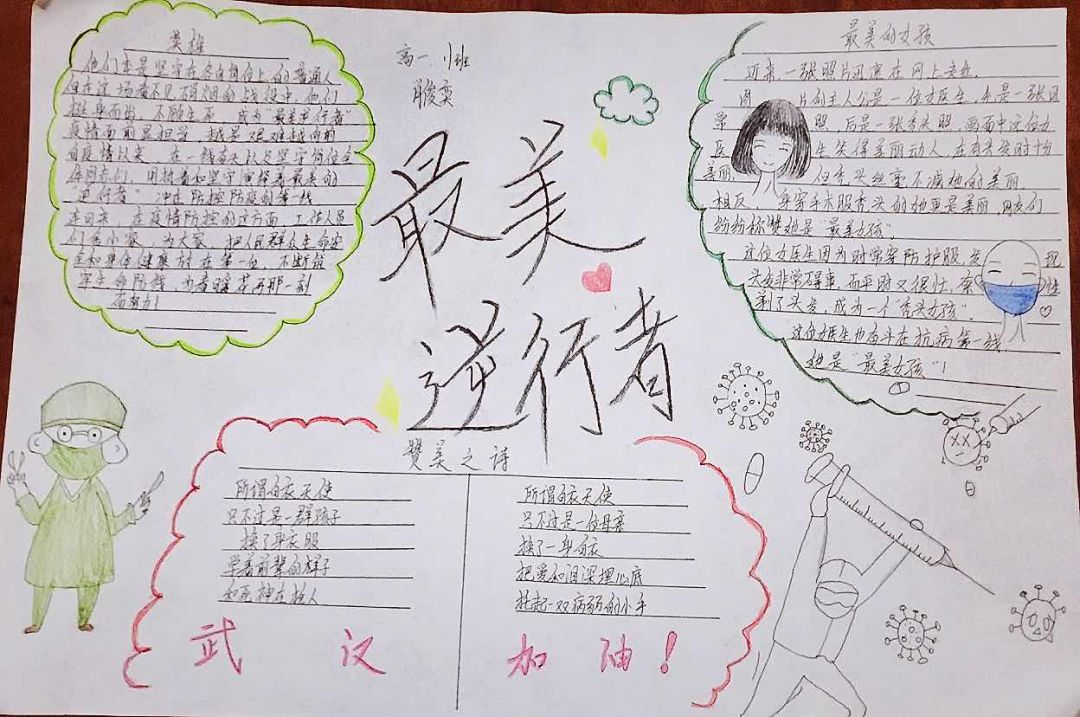 英雄
他们本是坚守在各自岗位上的普通人
但在这场看不见硝烟的战役中,他们
挺身而出,不顾生死,成为"最美逆行者"
疫情面前显担当,越是艰难越向前
自疫情以来,在一线奋头以及坚守岗位全
体同志们,用执着和坚守演绎着最美的
"逆行者",冲在防控防疫的第一线
连日来,在疫情防控的这方面,工作人员
们舍小家,为大家,把人民群众生命安
全和身体健康放在第一位,不断筑
牢生命防线,为春暖花开那一刻
而努力!
高一 班
最美
逆行者
最美的女孩
近来,一张照片迅速在网上走红.
图 片的主人公是一位女医生,先是一张日
常 照,后是一张秃头照,画面中这位女
医 生笑得美丽动人,在有头发时十分
美丽, 但秃头丝毫不减她的美丽
相反,身穿手术服秃头的她更是美丽,网友们
纷纷称赞她是"最美女孩"
这位女医生因为时常穿防护服,发现
头发非常碍事,而平时又很忙,索性
剃了头发,成为一个"秃头女孩".
这位女医生也奋斗在抗病第一线,
她是"最美女孩"!
赞美之诗
所谓白衣天使
只不过是一群孩子
换了身衣服
学着前辈的样子
和死神在抢人
所谓白衣天使
只不过是一位母亲
换了一身白衣
把爱和泪深埋心底
托起一双病弱的小手
武汉加油!